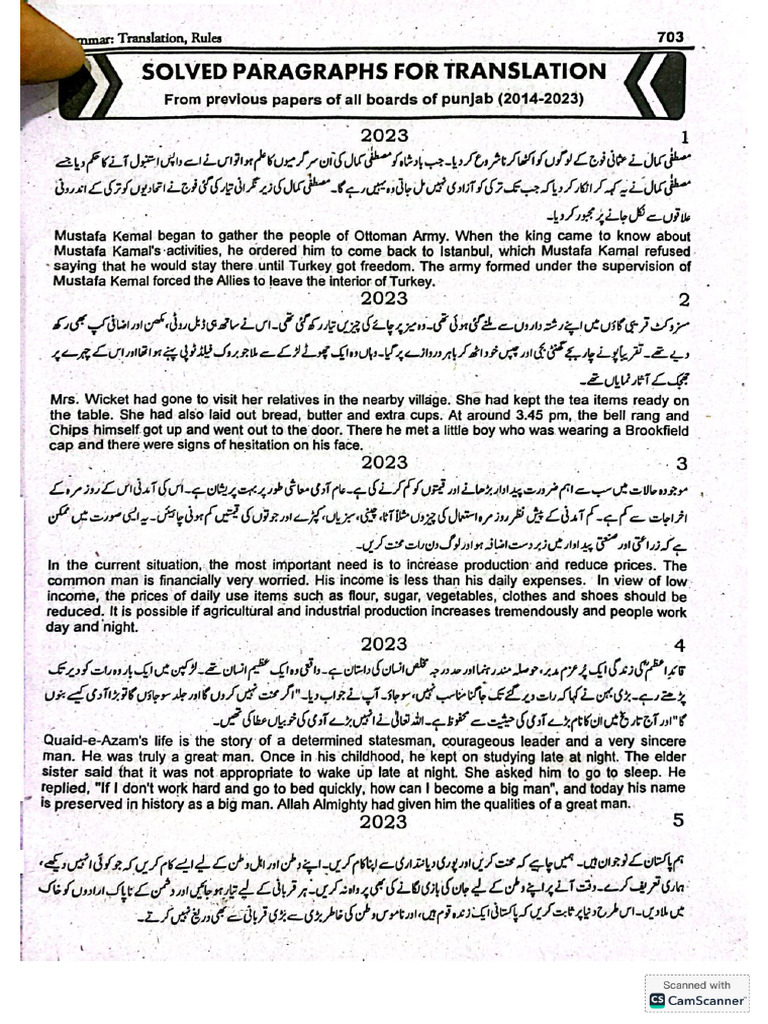 mmar: Translation, Rules 703
SOLVED PARAGRAPHS FOR TRANSLATION
From previous papers of all boards of punjab (2014-2023)
2023 1
مصطفیٰ کمال نے عثمانی فوج کے لوگوں کو اکٹھا کرنا شروع کر دیا۔ جب بادشاہ کو مصطفیٰ کمال کی ان سرگرمیوں کا علم ہوا تو اس نے اسے واپس استنبول آنے کا حکم دیا جسے
مصطفیٰ کمال نے یہ کہہ کر انکار کر دیا کہ جب تک ترکی کو آزادی نہیں مل جاتی وہ یہیں رہے گا۔ مصطفیٰ کمال کی زیر نگرانی تیار کی گئی فوج نے اتحادیوں کو ترکی کے اندرونی
علاقوں سے نکل جانے پر مجبور کر دیا۔
Mustafa Kemal began to gather the people of Ottoman Army. When the king came to know about
Mustafa Kamal's activities, he ordered him to come back to Istanbul, which Mustafa Kamal refused
saying that he would stay there until Turkey got freedom. The army formed under the supervision of
Mustafa Kemal forced the Allies to leave the interior of Turkey.
2023 2
مسز وکٹ قریبی گاؤں میں اپنے رشتہ داروں سے ملنے گئی ہوئی تھی۔ وہ میز پر چائے کی چیزیں تیار رکھ گئی تھی۔ اس نے ساتھ ہی ڈبل روٹی، مکھن اور اضافی کپ بھی رکھ
دیے تھے۔ تقریباً پونے چار بجے گھنٹی بجی اور چپس خود اٹھ کر باہر دروازے پر گیا۔ وہاں وہ ایک چھوٹے لڑکے سے ملا جو بروک فیلڈ ٹوپی پہنے ہوا تھا اور اس کے چہرے پر
جھجک کے آثار نمایاں تھے۔
Mrs. Wicket had gone to visit her relatives in the nearby village. She had kept the tea items ready on
the table. She had also laid out bread, butter and extra cups. At around 3.45 pm, the bell rang and
Chips himself got up and went out to the door. There he met a little boy who was wearing a Brookfield
cap and there were signs of hesitation on his face.
2023 3
موجودہ حالات میں سب سے اہم ضرورت پیداوار بڑھانے اور قیمتوں کو کم کرنے کی ہے۔ عام آدمی معاشی طور پر بہت پریشان ہے۔ اس کی آمدنی اس کے روز مرہ کے
اخراجات سے کم ہے۔ کم آمدنی کے پیش نظر روز مرہ استعمال کی چیزوں مثلاً آٹا، چینی، سبزیاں، کپڑے اور جوتوں کی قیمتیں کم ہونی چاہئیں۔ یہ ایسی صورت میں ممکن
ہے کہ زراعتی اور صنعتی پیداوار میں زبردست اضافہ ہو اور لوگ دن رات محنت کریں۔
In the current situation, the most important need is to increase production and reduce prices. The
common man is financially very worried. His income is less than his daily expenses. In view of low
income, the prices of daily use items such as flour, sugar, vegetables, clothes and shoes should be
reduced. It is possible if agricultural and industrial production increases tremendously and people work
day and night.
2023 4
قائد اعظمؒ کی زندگی ایک پُر عزم مدبر، حوصلہ مند رہنما اور حد درجہ مخلص انسان کی داستان ہے۔ واقعی وہ ایک عظیم انسان تھے۔ لڑکپن میں ایک بار وہ رات کو دیر تک
پڑھتے رہے۔ بڑی بہن نے کہا کہ رات دیر گئے تک جاگنا مناسب نہیں، سو جاؤ۔ آپ نے جواب دیا۔ "اگر محنت نہیں کروں گا اور جلد سو جاؤں گا تو بڑا آدمی کیسے بنوں
گا" اور آج تاریخ میں ان کا نام بڑے آدمی کی حیثیت سے محفوظ ہے۔ اللہ تعالیٰ نے انہیں بڑے آدمی کی خوبیاں عطا کی تھیں۔
Quaid-e-Azam's life is the story of a determined statesman, courageous leader and a very sincere
man. He was truly a great man. Once in his childhood, he kept on studying late at night. The elder
sister said that it was not appropriate to wake up late at night. She asked him to go to sleep. He
replied, "If I don't work hard and go to bed quickly, how can I become a big man", and today his name
is preserved in history as a big man. Allah Almighty had given him the qualities of a great man.
2023 5
ہم پاکستان کے نوجوان ہیں۔ ہمیں چاہیے کہ محنت کریں اور پوری دیانتداری سے اپنا کام کریں۔ اپنے وطن اور اہل وطن کے لیے ایسے کام کریں کہ جو کوئی انہیں دیکھے،
ہماری تعریف کرے۔ وقت آنے پر اپنے وطن کے لیے جان کی بازی لگانے کی بھی پرواہ نہ کریں۔ ہر قربانی کے لیے تیار ہو جائیں اور دشمن کے ناپاک ارادوں کو خاک
میں ملا دیں۔ اس طرح دنیا پر ثابت کریں کہ پاکستانی ایک زندہ قوم ہیں، اور ناموس وطن کی خاطر بڑی سے بڑی قربانی سے بھی دریغ نہیں کرتے۔
Scanned with
CS CamScanner